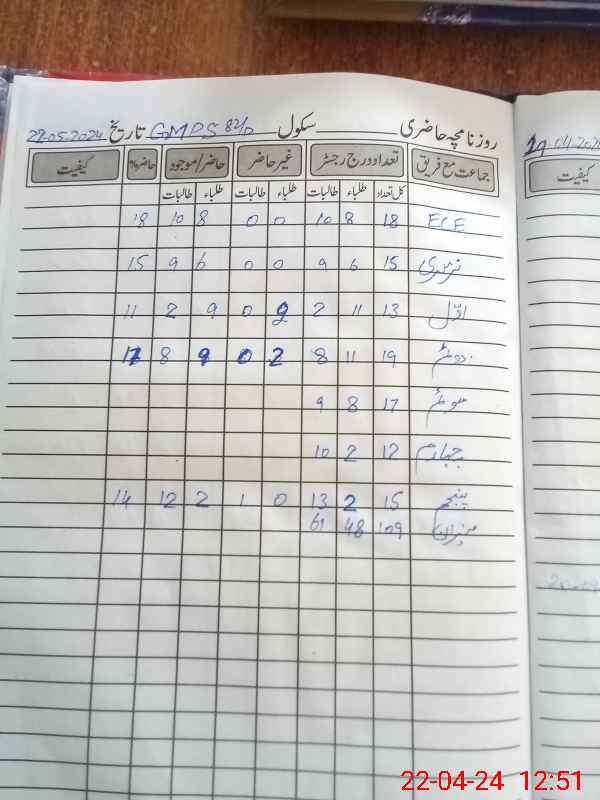 روزنامچہ حاضری سکول GMPS 82/D تاریخ 22-05-2024
جماعت مع فریق تعداد درج رجسٹر غیر حاضر حاضر/موجود حاضر% کیفیت
کل تعداد طلباء طالبات طلباء طالبات طلباء طالبات
ECE 18 8 10 0 0 8 10 18
نرسری 15 6 9 0 0 6 9 15
اوّل 13 11 2 2 0 9 2 11
دوئم 19 11 8 2 0 9 8 17
سوئم 17 8 9
چہارم 12 2 10
پنجم 15 2 13 0 1 2 12 14
میزان 109 48 61
کیفیت
22-04-24 12:51